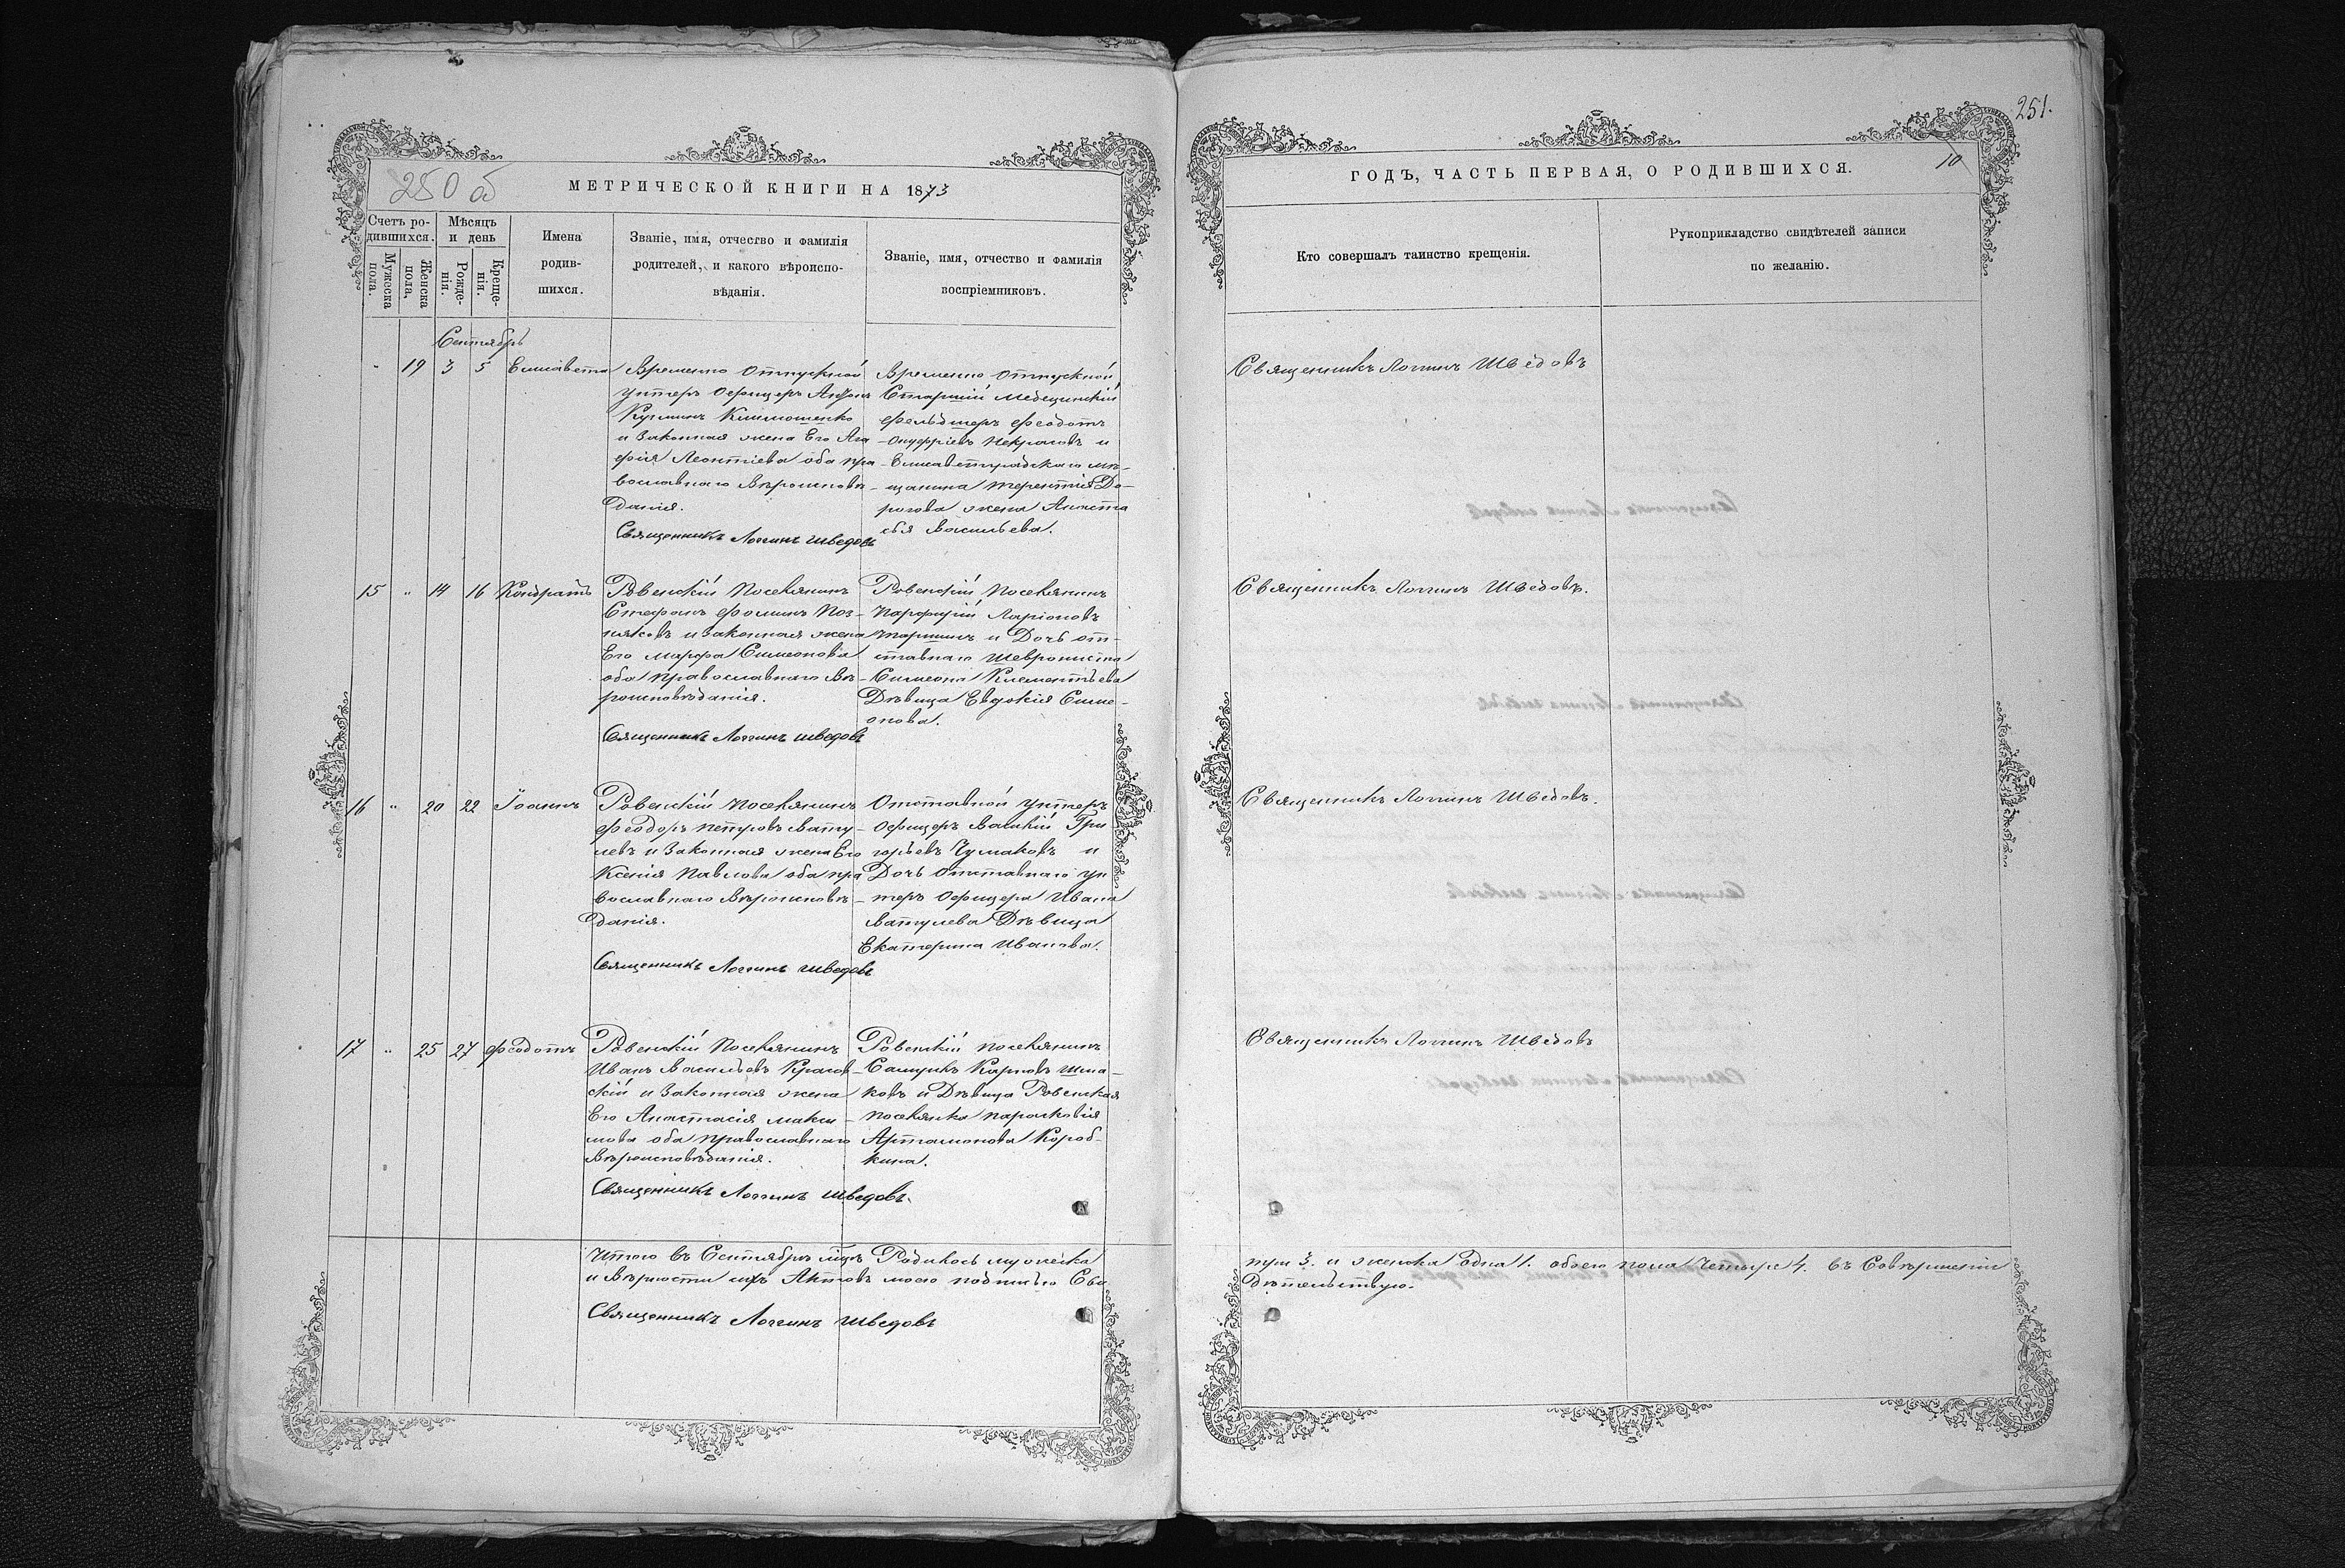 250 об
МЕТРИЧЕСКОЙ КНИГИ НА 1873
Счетъ ро-
дившихся.
Мужеска
пола.
Женска
пола.
Мѣсяцъ
и день
Рожде-
нія.
Креще-
нія.
Имена
родив-
шихся.
Званіе, имя, отчество и фамилія
родителей, и какого вѣроиспо-
вѣданія.
Званіе, имя, отчество и фамилія
воспріемниковъ.
Сентябрь
19 3 5 Елисавета
Временно Отпускной
Унтеръ Офицеръ
Кузминъ Климошенко
и Законная жена Его Ага
фія Леонтіева оба пра
вославнаго Вѣроисповѣ
данія.
Священникъ Логгинъ Шведовъ
Временно Отпускной
Старшій Медецинскій
Фельдшеръ Феодотъ
Некрасовъ и
Елисаветградскаго мѣ-
щанина Терентія До-
рогова жена Анаста
сья Васильева.
15 „ 14 16 Кондратъ
Ровенскій Поселянинъ
Стефанъ Фоминъ Поз-
няковъ и законная жена
Его Марфа Симеонова
оба Православнаго Вѣ-
роисповѣданія.
Священникъ Логгинъ Шведовъ
Ровенскій Поселянинъ
Парфирій Ларіоновъ
и Дочь от-
ставнаго
Симеона Клементьева
Дѣвица Евдокія Симе-
онова.
16 „ 20 22 Іоаннъ
Ровенскій Поселянинъ
Феодоръ Петровъ Вату-
левъ и Законная жена Его
Ксенія Павлова оба пра
вославнаго Вѣроисповѣ
данія.
Священникъ Логгинъ Шведовъ
Отставной Унтеръ
Офицеръ Василій Гри
горьевъ Чумаковъ и
Дочь Отставнаго Ун
теръ Офицера Ивана
Ватулева Дѣвица
Екатерина Иванова.
17 „ 25 27 Феодотъ
Ровенскій Поселянинъ
Иванъ Васильевъ Красов-
скій и Законная жена
Его Анастасія Макси-
мова оба Православнаго
Вѣроисповѣданія.
Священникъ Логгинъ Шведовъ.
Ровенскій поселянинъ
Карповъ Шма-
ковъ и Дѣвица Ровенская
поселянка Парасковія
Артамонова Короб-
кина.
Итого въ Сентябрѣ м-цѣ Родилось мужеска
и Вѣрности сихъ Актовъ моею подписью Сви
Священникъ Логгинъ Шведовъ
251.
10
ГОДЪ, ЧАСТЬ ПЕРВАЯ, О РОДИВШИХСЯ.
Кто совершалъ таинство крещенія.
Рукоприкладство свидѣтелей записи
по желанію.
Священникъ Логгинъ Шведовъ
Священникъ Логгинъ Шведовъ.
Священникъ Логгинъ Шведовъ.
Священникъ Логгинъ Шведовъ
три 3. и женска одна 1. обоего пола Четыре 4. въ Совершеніи
дѣтельствую.